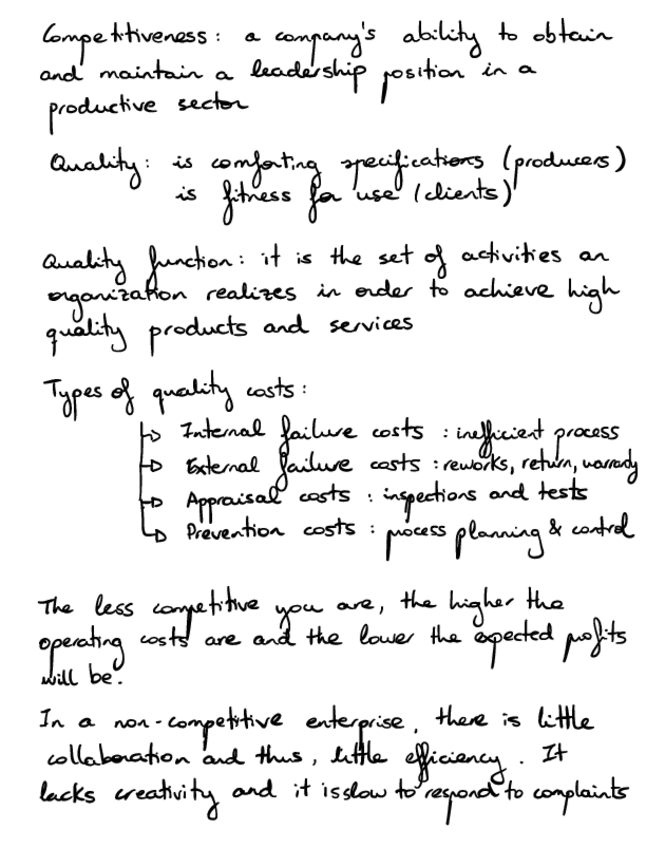 Competitiveness: a company's ability to obtain
and maintain a leadership position in a
productive sector
Quality: is comforting specifications (producers)
is fitness for use (clients)
Quality function: it is the set of activities an
organization realizes in order to achieve high
quality products and services
Types of quality costs:
Internal failure costs : inefficient process
External failure costs : reworks, return, warranty
Appraisal costs : inspections and tests
Prevention costs : process planning & control
The less competitive you are, the higher the
operating costs are and the lower the expected profits
will be.
In a non-competitive enterprise, there is little
collaboration and thus, little efficiency. It
lacks creativity and it is slow to respond to complaints